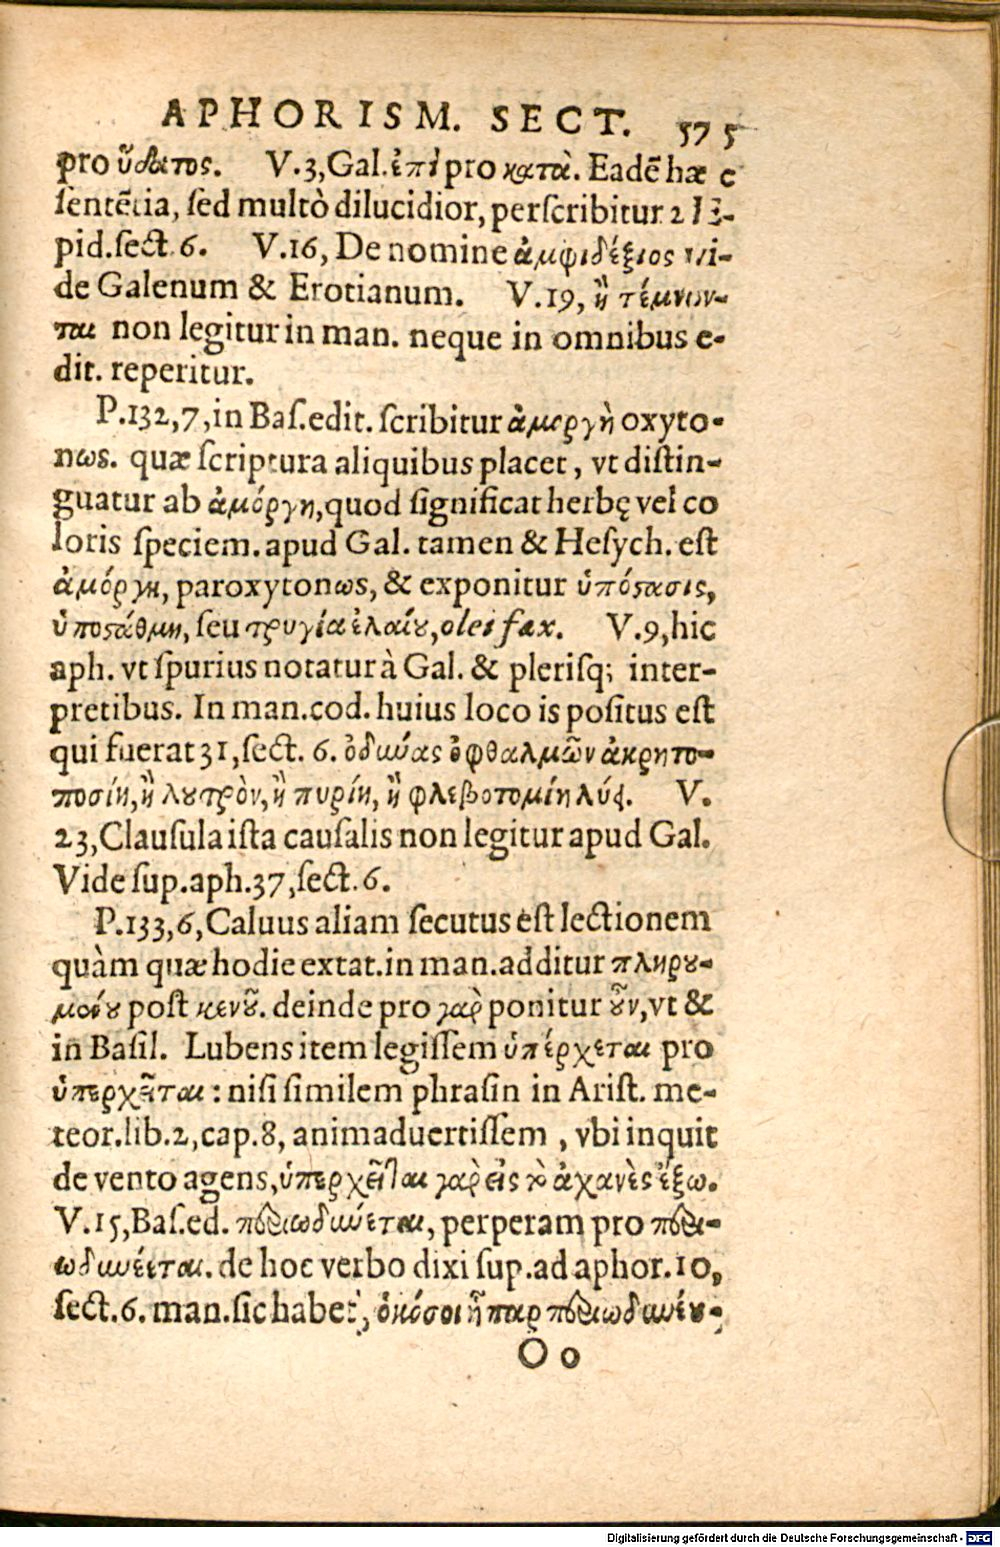 APHORISM. SECT. 575
pro ὕδατος. V.3, Gal. ἐπὶ pro κατὰ. Eadẽ hæc
ſentẽtia, ſed multò dilucidior, perſcribitur 2 E-
pid.ſect.6. V.16, De nomine ἀμφιδέξιος vi-
de Galenum & Erotianum. V.19, ἢ τέμνον-
ται non legitur in man. neque in omnibus e-
dit. reperitur.
P.132,7,in Baſ.edit. ſcribitur ἀμεργὴ oxyto-
nωs. quæ ſcriptura aliquibus placet, vt diſtin-
guatur ab ἀμόργη,quod ſignificat herbę vel co
loris ſpeciem. apud Gal. tamen & Heſych. eſt
ἀμόργη, paroxytonωs, & exponitur ὑπόϛασις,
ὑποϛάθμη, ſeu τρυγία ἐλαίȣ,olei fæx. V.9,hic
aph. vt ſpurius notatur à Gal. & pleriſq; inter-
pretibus. In man.cod. huius loco is poſitus eſt
qui fuerat 31,ſect. 6. ὀδύνας ὀφθαλμῶν ἀκρητο-
ποσίη,ἢ λȣτρὸν,ἢ πυρίη, ἢ φλεβοτομίη λύει. V.
23,Clauſula iſta cauſalis non legitur apud Gal.
Vide ſup.aph.37,ſect.6.
P.133,6,Caluus aliam ſecutus eſt lectionem
quàm quæ hodie extat. in man.additur πληρȣ-
μένȣ poſt κενȣ͂. deinde pro γαρ ponitur ȣ̓͂ν,vt &
in Baſil. Lubens item legiſſem ὑπέρχεται pro
ὑπερχεῖται: niſi ſimilem phraſin in Ariſt. me-
teor.lib.2,cap.8, animaduertiſſem, vbi inquit
de vento agens,ὑπερχεῖται γαρ εἰς τὸ ἀχανὲς ἔξω.
V.15,Baſ.ed. περιωδυνέεται, perperam pro περι-
ωδυνέεται. de hoc verbo dixi ſup.ad aphor.10,
ſect.6. man.ſic habet, ὁκόσοι ἧπαρ περιωδυνέȣ-
Oo
Digitalisierung gefördert durch die Deutsche Forschungsgemeinschaft - DFG